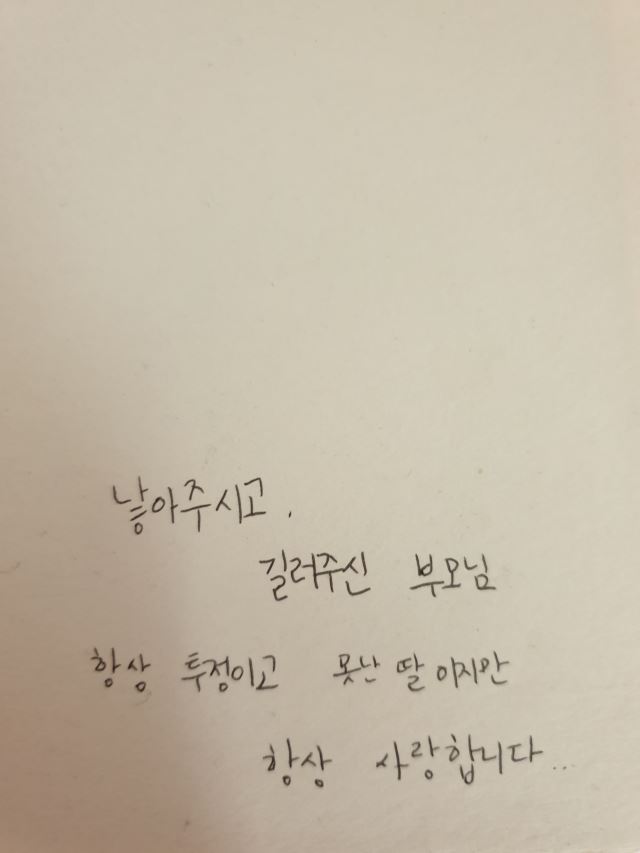 낳아주시고.
길러주신 부모님
항상 투정이고 못난 딸이지만
항상 사랑합니다...